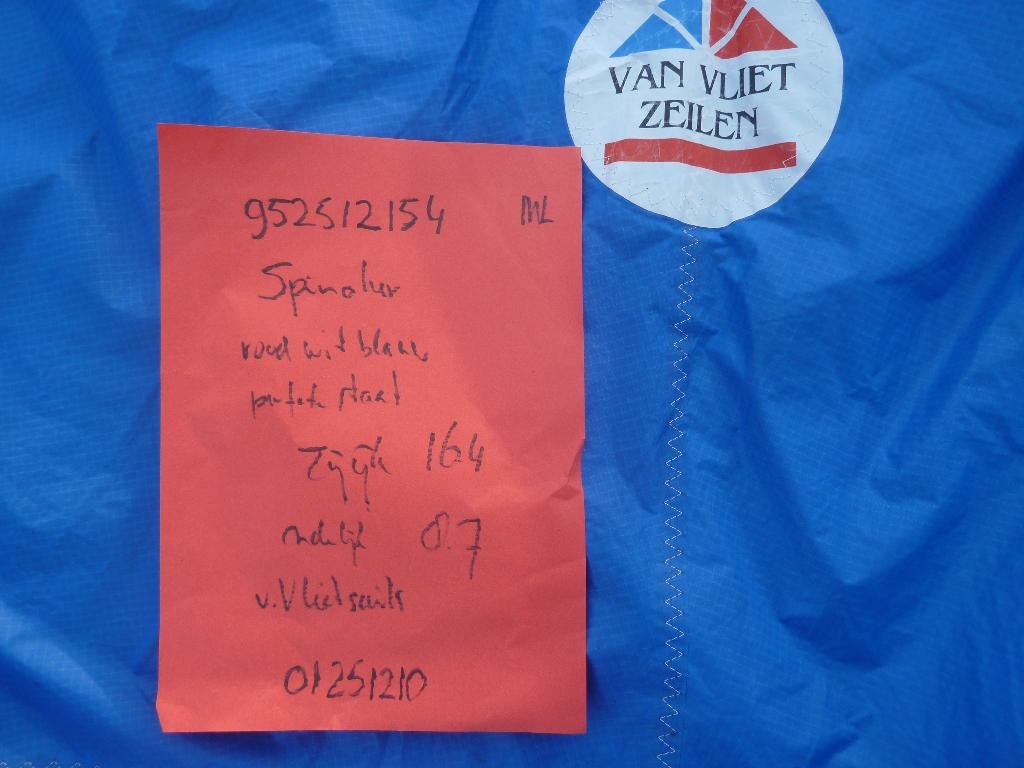 VAN VLIET
ZEILEN
952512154 ML
Spinaker
rood wit blauw
perfecte staat
Zijlijk 16.4
onderlijk 8.7
v. Vliet sails
01251210